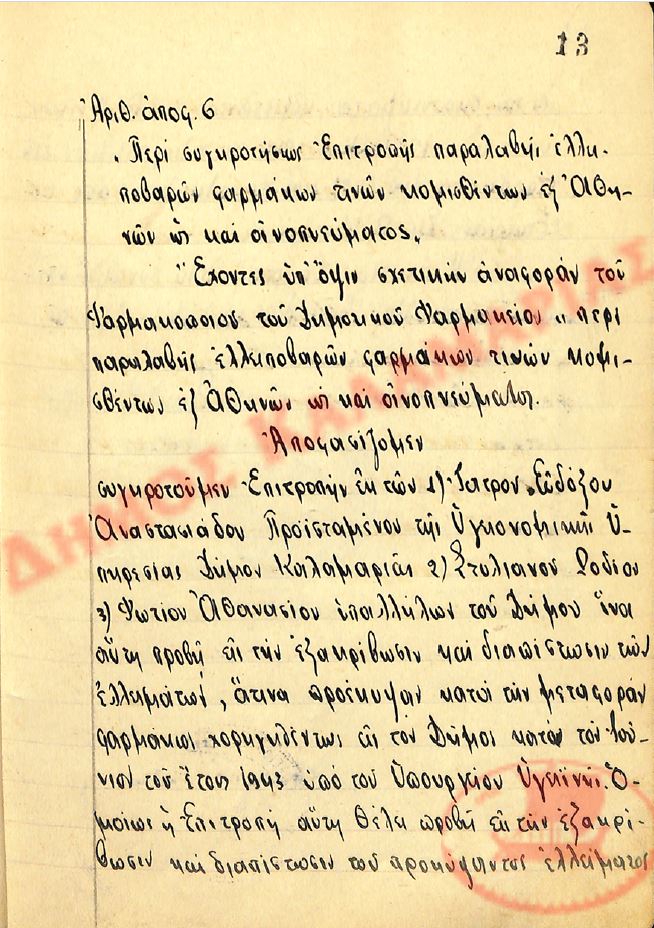 13
Ἀριθ. ἀποφ. 6
„Περὶ συγκροτήσεως Ἐπιτροπῆς παραλαβῆς ἐλλι-
ποβαρῶν φαρμάκων τινῶν κομισθέντων ἐξ Ἀθη-
νῶν ὡς καὶ οἰνοπνεύματος„
Ἔχοντες ὑπ' ὄψιν σχετικὴν ἀναφορὰν τοῦ
Φαρμακοποιοῦ τοῦ Δημοτικοῦ Φαρμακείου „περὶ
παραλαβῆς ἐλλιποβαρῶν φαρμάκων τινῶν κομι-
σθέντων ἐξ Ἀθηνῶν ὡς καὶ οἰνοπνεύματος.
Ἀποφασίζομεν
συγκροτοῦμεν Ἐπιτροπὴν ἐκ τῶν 1) Ἰατροῦ Εὐδόξου
Ἀναστασιάδου Προϊσταμένου τῆς Ὑγειονομικῆς Ὑ-
πηρεσίας Δήμου Καλαμαριᾶς 2) Στυλιανοῦ Ῥοδίου
3) Φωτίου Ἀθανασίου ὑπαλλήλων τοῦ Δήμου ἵνα
αὕτη προβῇ εἰς τὴν ἐξακρίβωσιν καὶ διαπίστωσιν τῶν
ἐλλειμάτων, ἅτινα προέκυψαν κατὰ τὴν μεταφορὰν
φαρμάκων χορηγηθέντων εἰς τὸν Δῆμον κατὰ τὸν Ἰού-
νιον τοῦ ἔτους 1943 ὑπὸ τοῦ Ὑπουργείου Ὑγιεινῆς. Ὁ-
μοίως ἡ Ἐπιτροπὴ αὕτη θέλει προβῇ εἰς τὴν ἐξακρί-
βωσιν καὶ διαπίστωσιν τοῦ προκύψαντος ἐλλείματος
ΔΗΜΟΣ ΚΑΛΑΜΑΡΙΑΣ